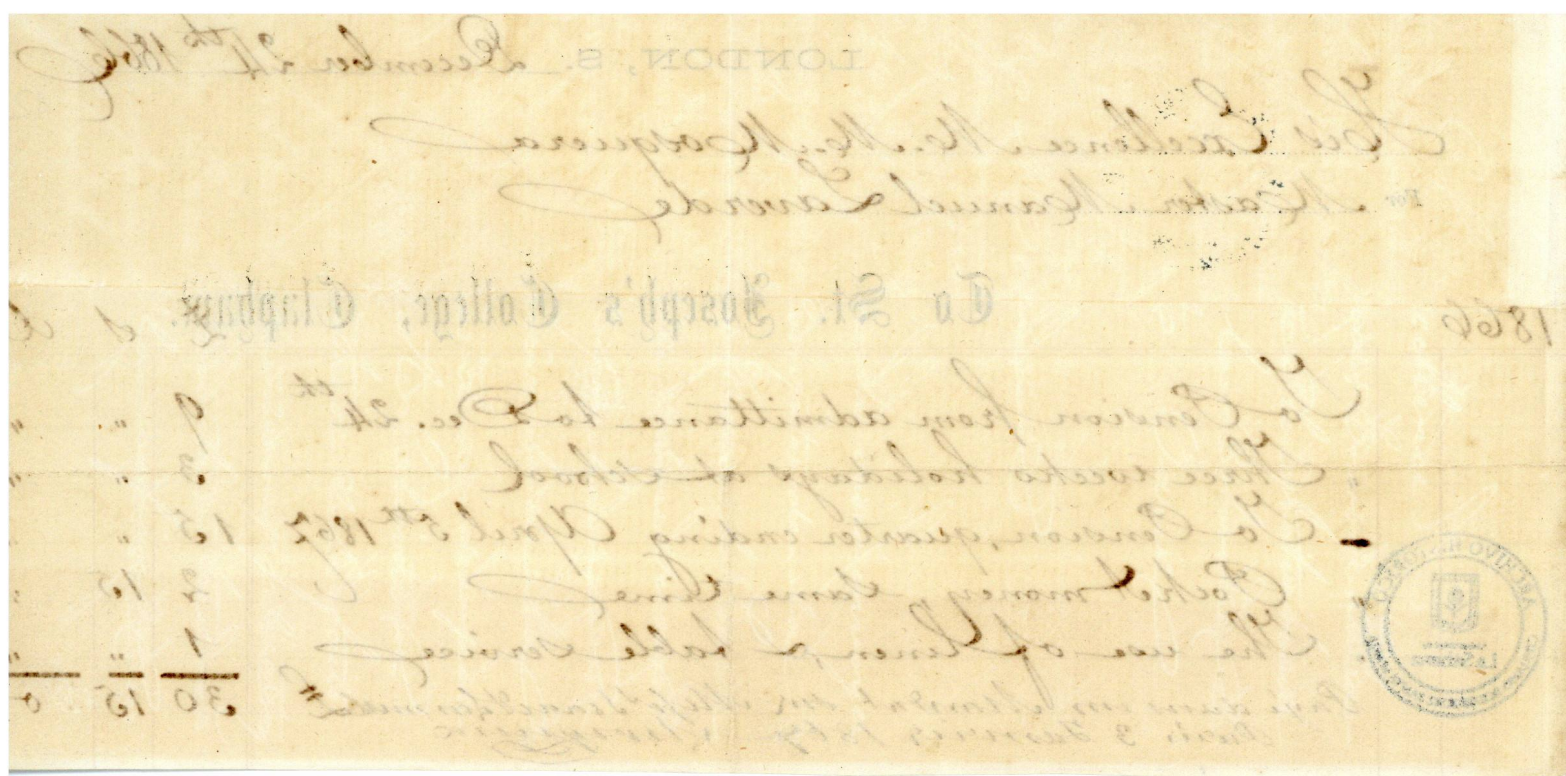 LONDON, S. December 24th 1866
His Excellence M. M. Mosquera
For Master Manuel Laverde
To St. Joseph's College, Clapham.
1866 £ s d
To Pension from admittance to Dec. 24th 9 " "
" Three weeks holidays at school 3 " "
To Pension, quarter ending April 5th 1867 15 " "
" Pocket money, same time 2 15 "
The use of linen, & table service 1 " "
£ 30 15 0
3 1867
ARCHIVO HISTORICO